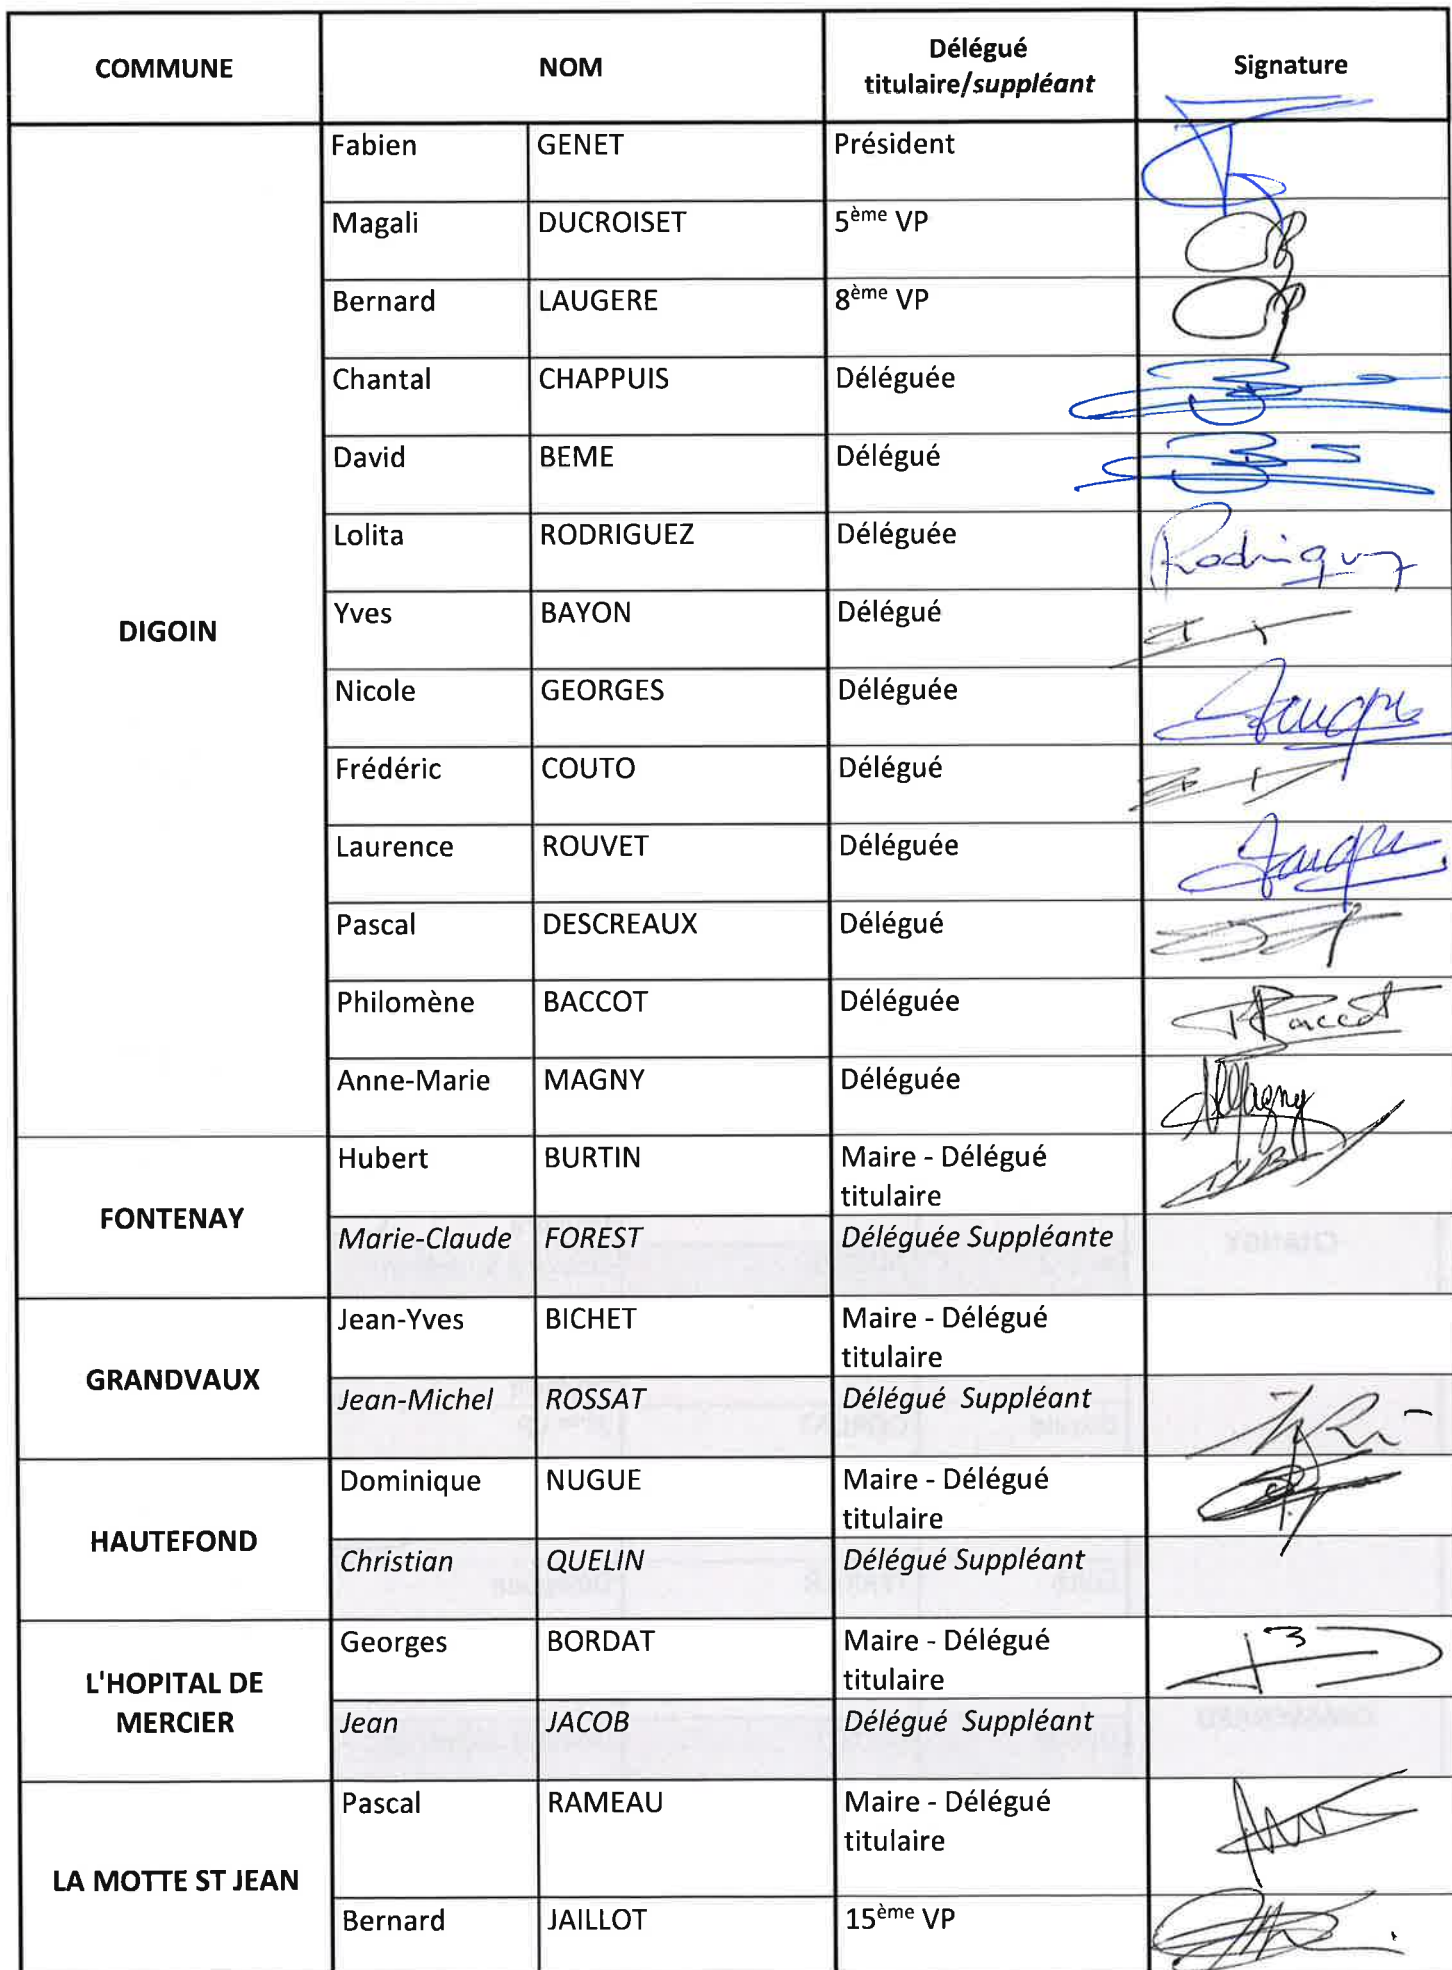 COMMUNE NOM Délégué titulaire/suppléant Signature
DIGOIN
Fabien GENET Président
Magali DUCROISET 5ème VP
Bernard LAUGERE 8ème VP
Chantal CHAPPUIS Déléguée
David BEME Délégué
Lolita RODRIGUEZ Déléguée Rodriguez
Yves BAYON Délégué
Nicole GEORGES Déléguée
Frédéric COUTO Délégué
Laurence ROUVET Déléguée
Pascal DESCREAUX Délégué
Philomène BACCOT Déléguée PBaccot
Anne-Marie MAGNY Déléguée AMagny
FONTENAY
Hubert BURTIN Maire - Délégué
titulaire
Marie-Claude FOREST Déléguée Suppléante
GRANDVAUX
Jean-Yves BICHET Maire - Délégué
titulaire
Jean-Michel ROSSAT Délégué Suppléant
HAUTEFOND
Dominique NUGUE Maire - Délégué
titulaire
Christian QUELIN Délégué Suppléant
L'HOPITAL DE
MERCIER
Georges BORDAT Maire - Délégué
titulaire
Jean JACOB Délégué Suppléant
LA MOTTE ST JEAN
Pascal RAMEAU Maire - Délégué
titulaire
Bernard JAILLOT 15ème VP